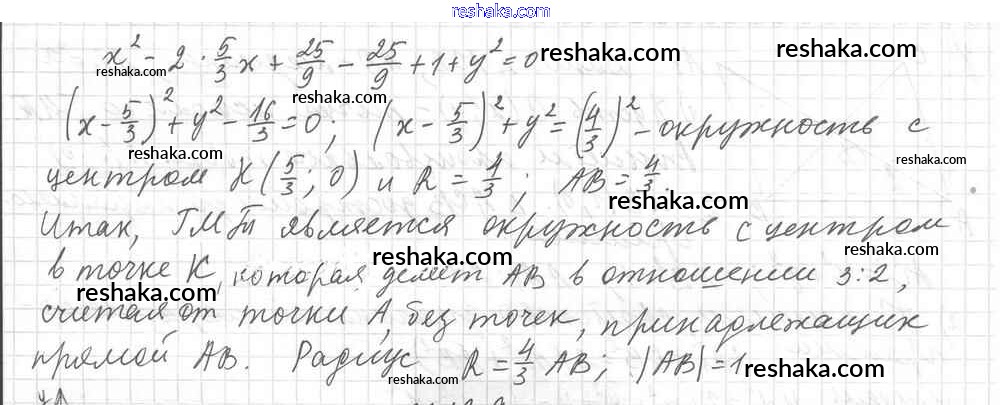 reshaka.com
x² - 2 · 5/3 x + 25/9 - 25/9 + 1 + y² = 0 reshaka.com reshaka.com
reshaka.com reshaka.com
(x - 5/3)² + y² - 16/3 = 0; (x - 5/3)² + y² = (4/3)² - окружность с
reshaka.com reshaka.com
центром K (5/3; 0) и R = 4/3; AB = 4/3.
reshaka.com reshaka.com
Итак, ГМТ является окружность с центром
reshaka.com reshaka.com
в точке K, которая делит AB в отношении 3:2,
reshaka.com reshaka.com
считая от точки A, без точек, принадлежащих
reshaka.com
прямой AB. Радиус R = 4/3 AB; |AB| = 1
reshaka.com reshaka.com reshaka.com